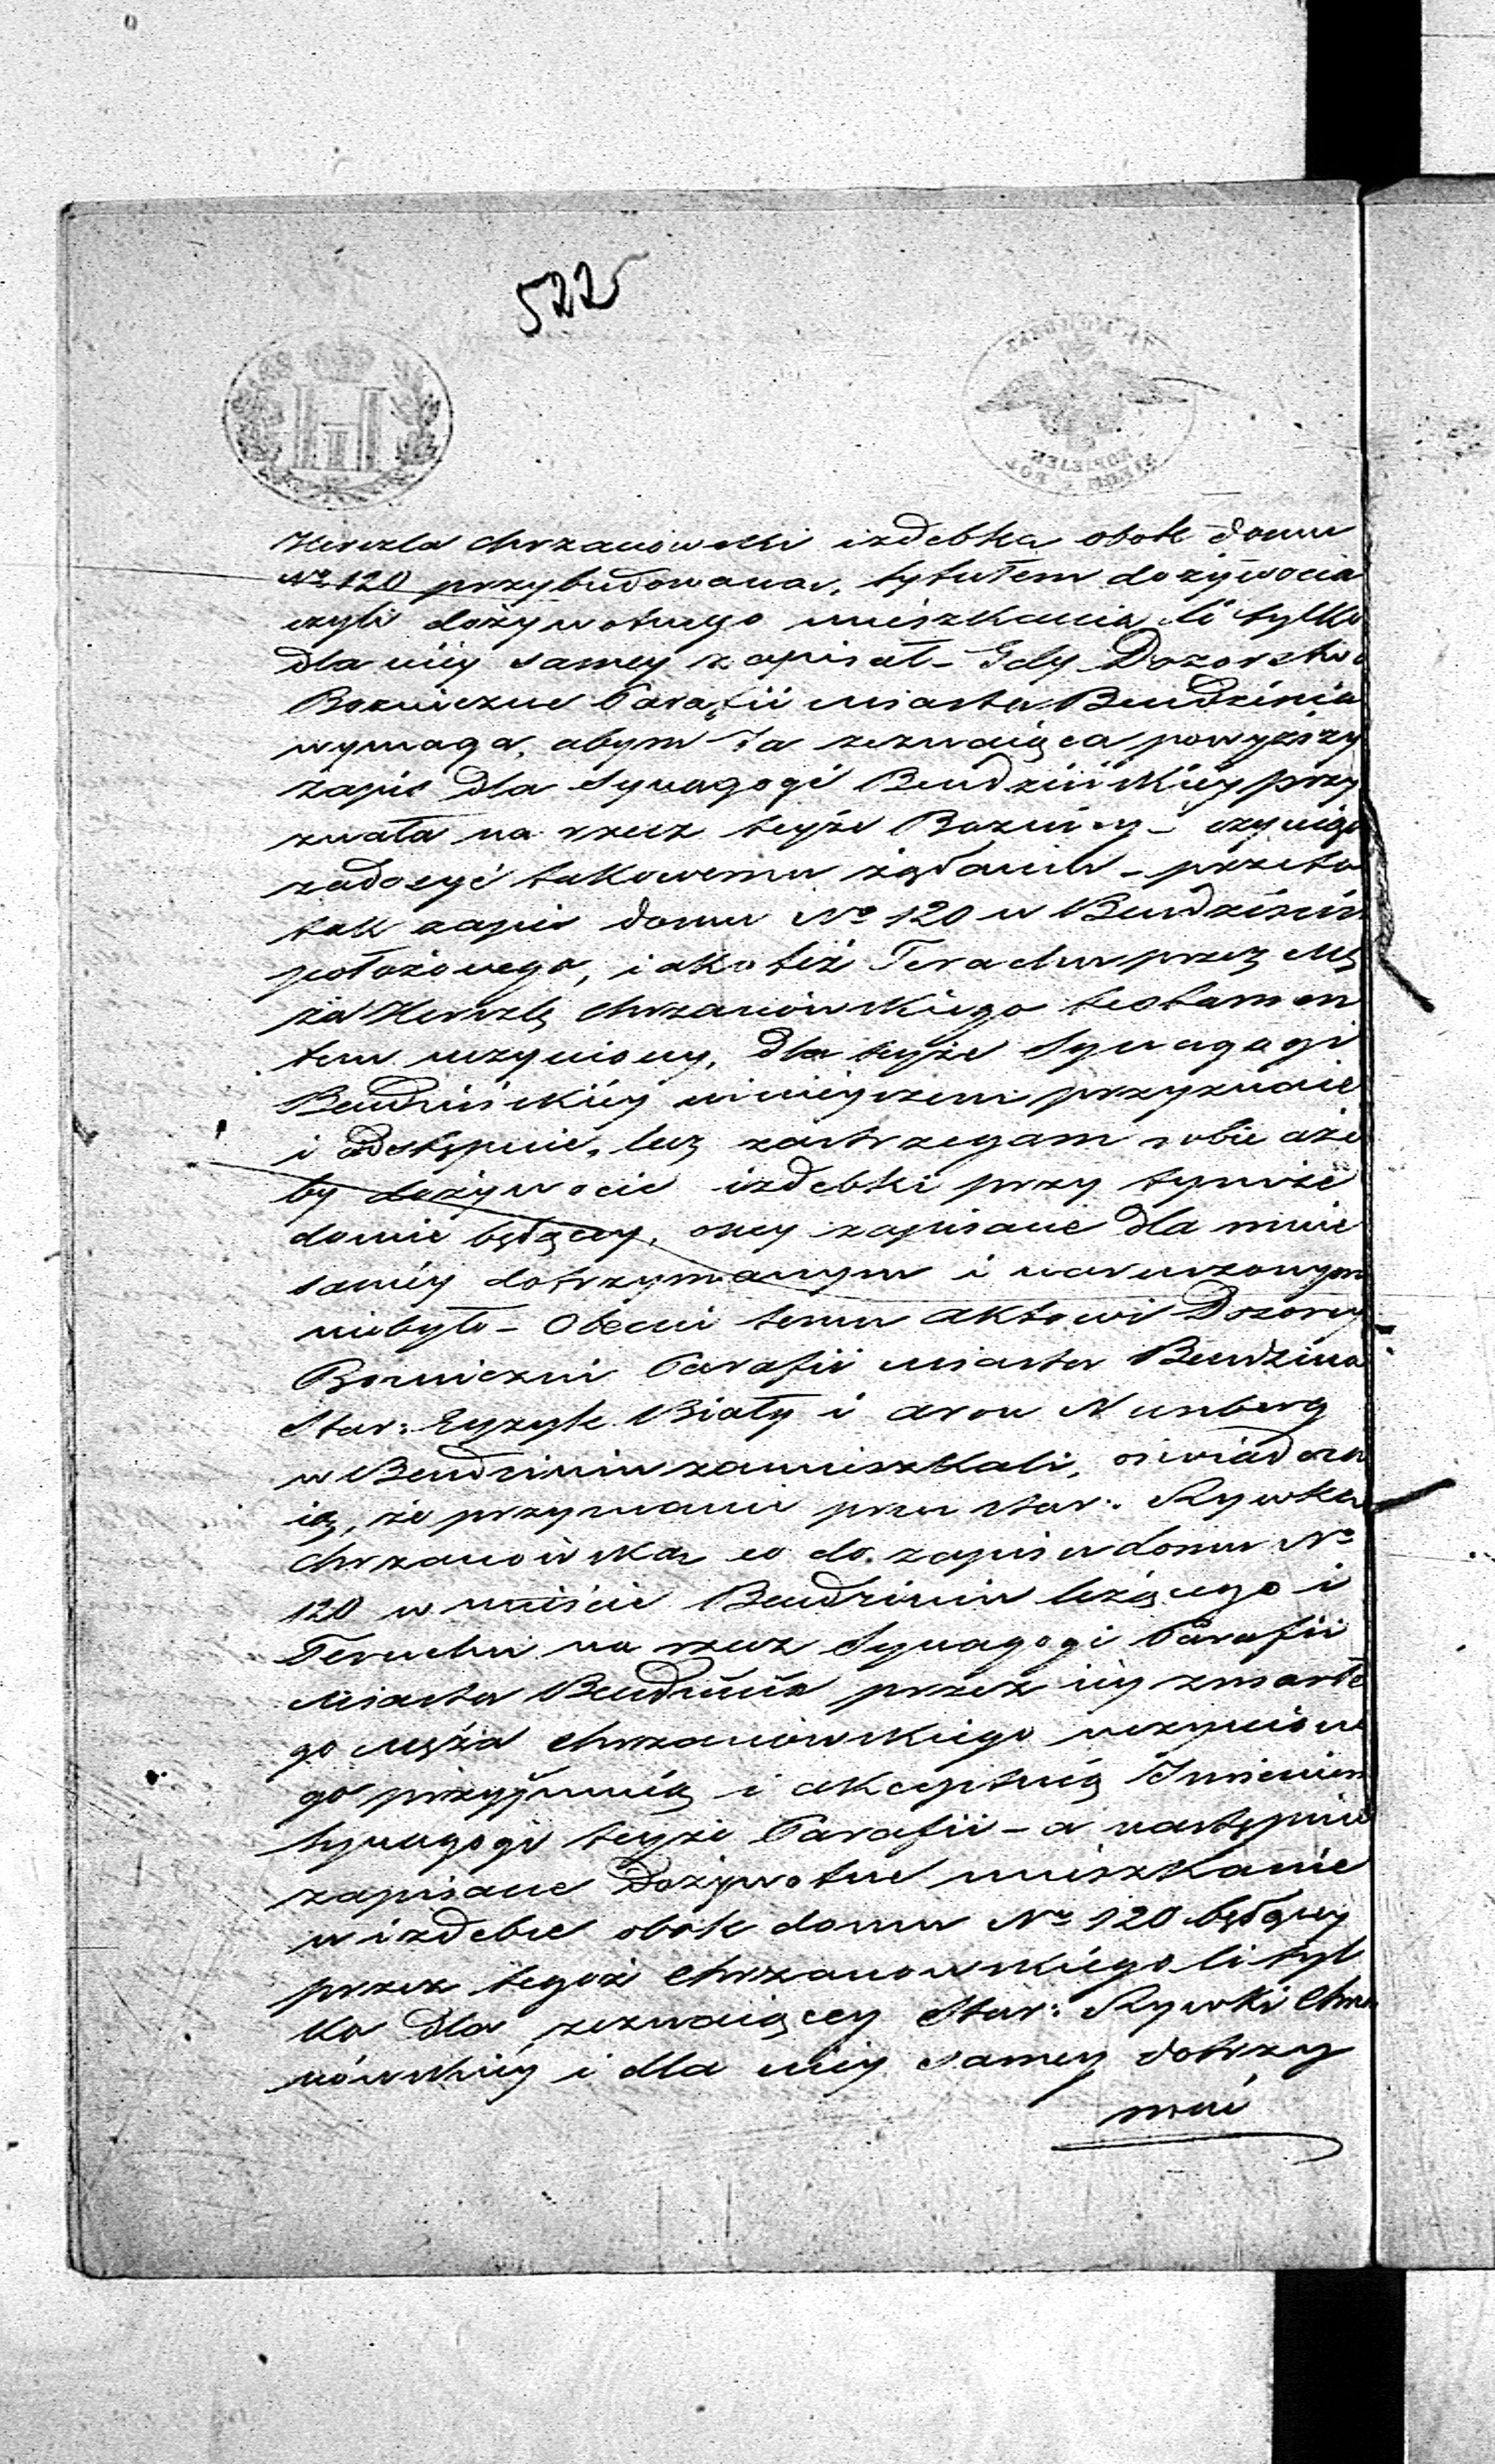 522
Herszla Chrzanowski izdebka obok domu
No 120 przybudowana, tytułem dożywocia
czyli dożywotnego mieszkania li tylko
dla niiy samey zapisał – Gdy Dozorstwo
Bozniczne Parafii Miasta Bendzinia
wymaga, abym Ja zeznaiąca powyższy
zapis dla Synagogi Bendzińskiey przy
znała na rzecz teyże Boznicy – czyniąc
zadosyć takowemu żądaniu – przeto
tak zapis domu No 120 w Bendzinie
położonego, iako też Terachu przez Mę
ża Herszlę Chrzanowskiego testamen
tem uczyniony, dla teyże Synagogi
Bendzińskiey ninieyszem przyznaie
i odstępuie, lecz zastrzegam sobie aże
by dożywocie izdebki przy tymże
domie będącey, oney zapisane dla mnie
saméy dotrzymanym i naruszonym
niebyło – Obecni temu aktowi Dozorcy
Bozniczni Parafii Miasta Bendzina
Star: Eyzyk Biały i Aron Nunberg
w Bendziniu zamieszkali, oswiadcza
ią, że przyznanie przez Star: Rywkę
Chrzanowską co do zapisu domu No
120 w mieście Bendziniu leżącego i
Teruchu na rzecz Synagogi Parafii
Miasta Bendzina przez iiy zmarłe
go męża Chrzanowskiego uczynione
go przyjmuią i akceptuią Imieniem
Synagogi teyże Parafii – a następnie
zapisane Dożywotne mieszkanie
w izdebce obok domu No 120 będącey
przez tegoż Chrzanowskiego li tyl
ko dla zeznaiącey Star: Rywki Chrza
nowskiey i dla niey samey dotrzy
mać